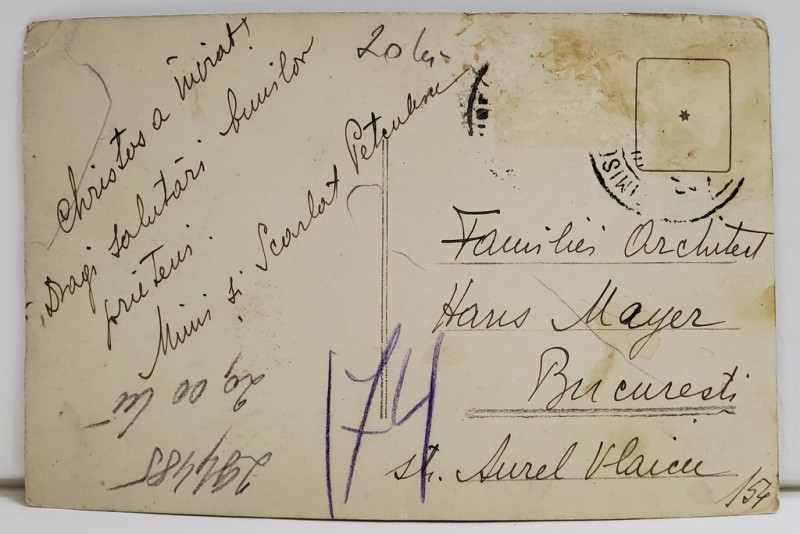 Christos a înviat!
Dragi salutări bunilor
prieteni.
Mimi și Scarlat Petculescu
20 lei
20,00 lei
294485
174
Familiei Architect
Hans Mayer
Bucuresti
st. Aurel Vlaicu
154